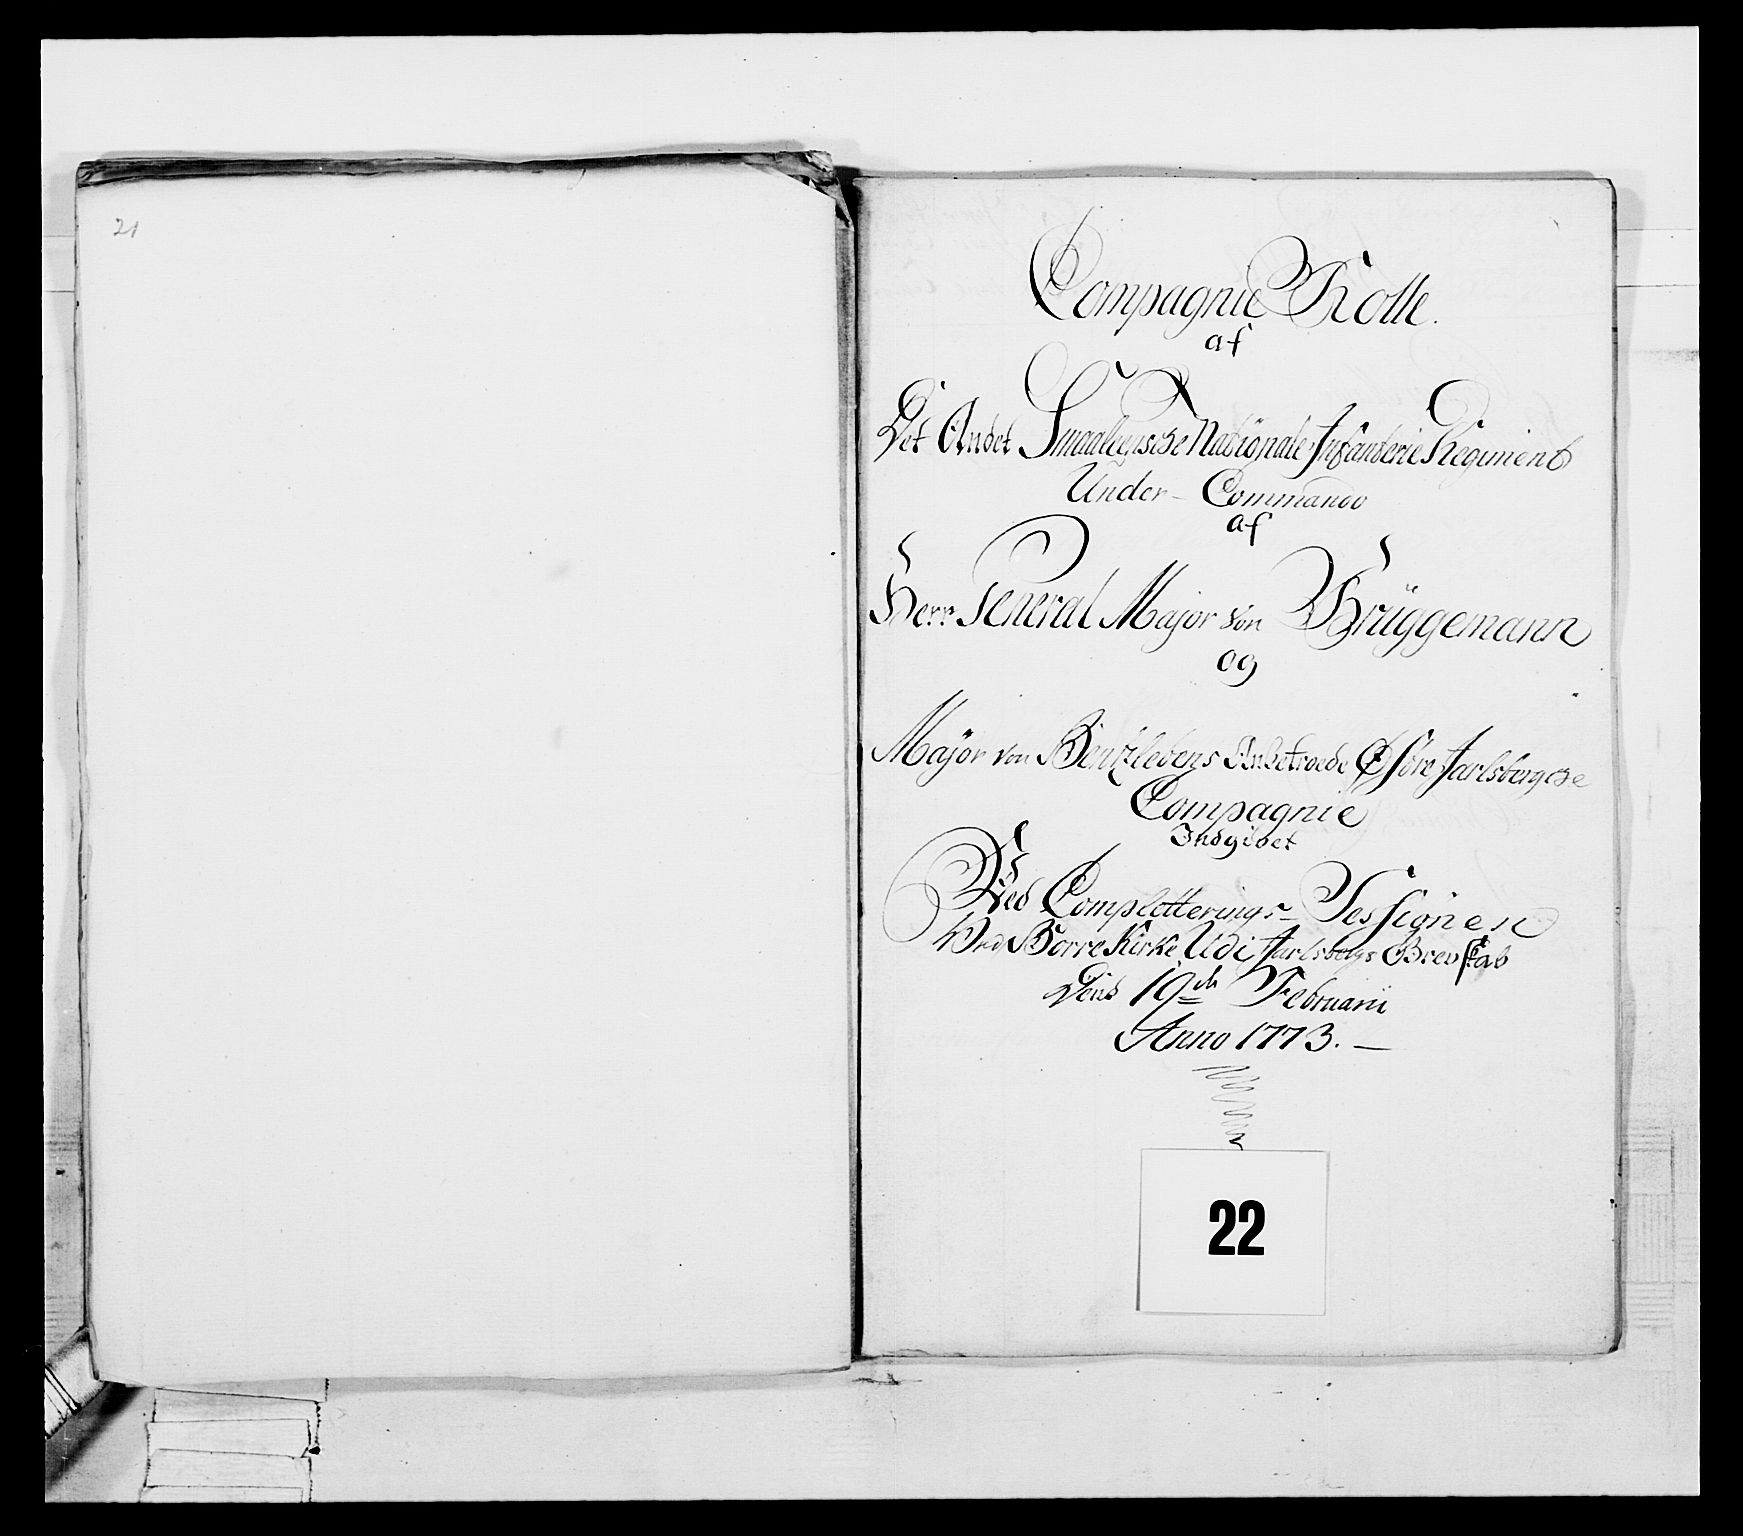 21
Compagnie Rolle.
af
Det Andet Smaalehnsche Nationale Infanterie Regiment
Under Commando
af
Herr General Major von Brüggemann
og
Major von Bentzlebens Anbetroede Øfdre Jarlsbergsche
Compagnie
Indgivet
Ved Completterings-Sessionen
Ved Borre Kirke Udi Jarlsbergs Grevskab
Dend 19de Februarii
Anno 1773. —
22